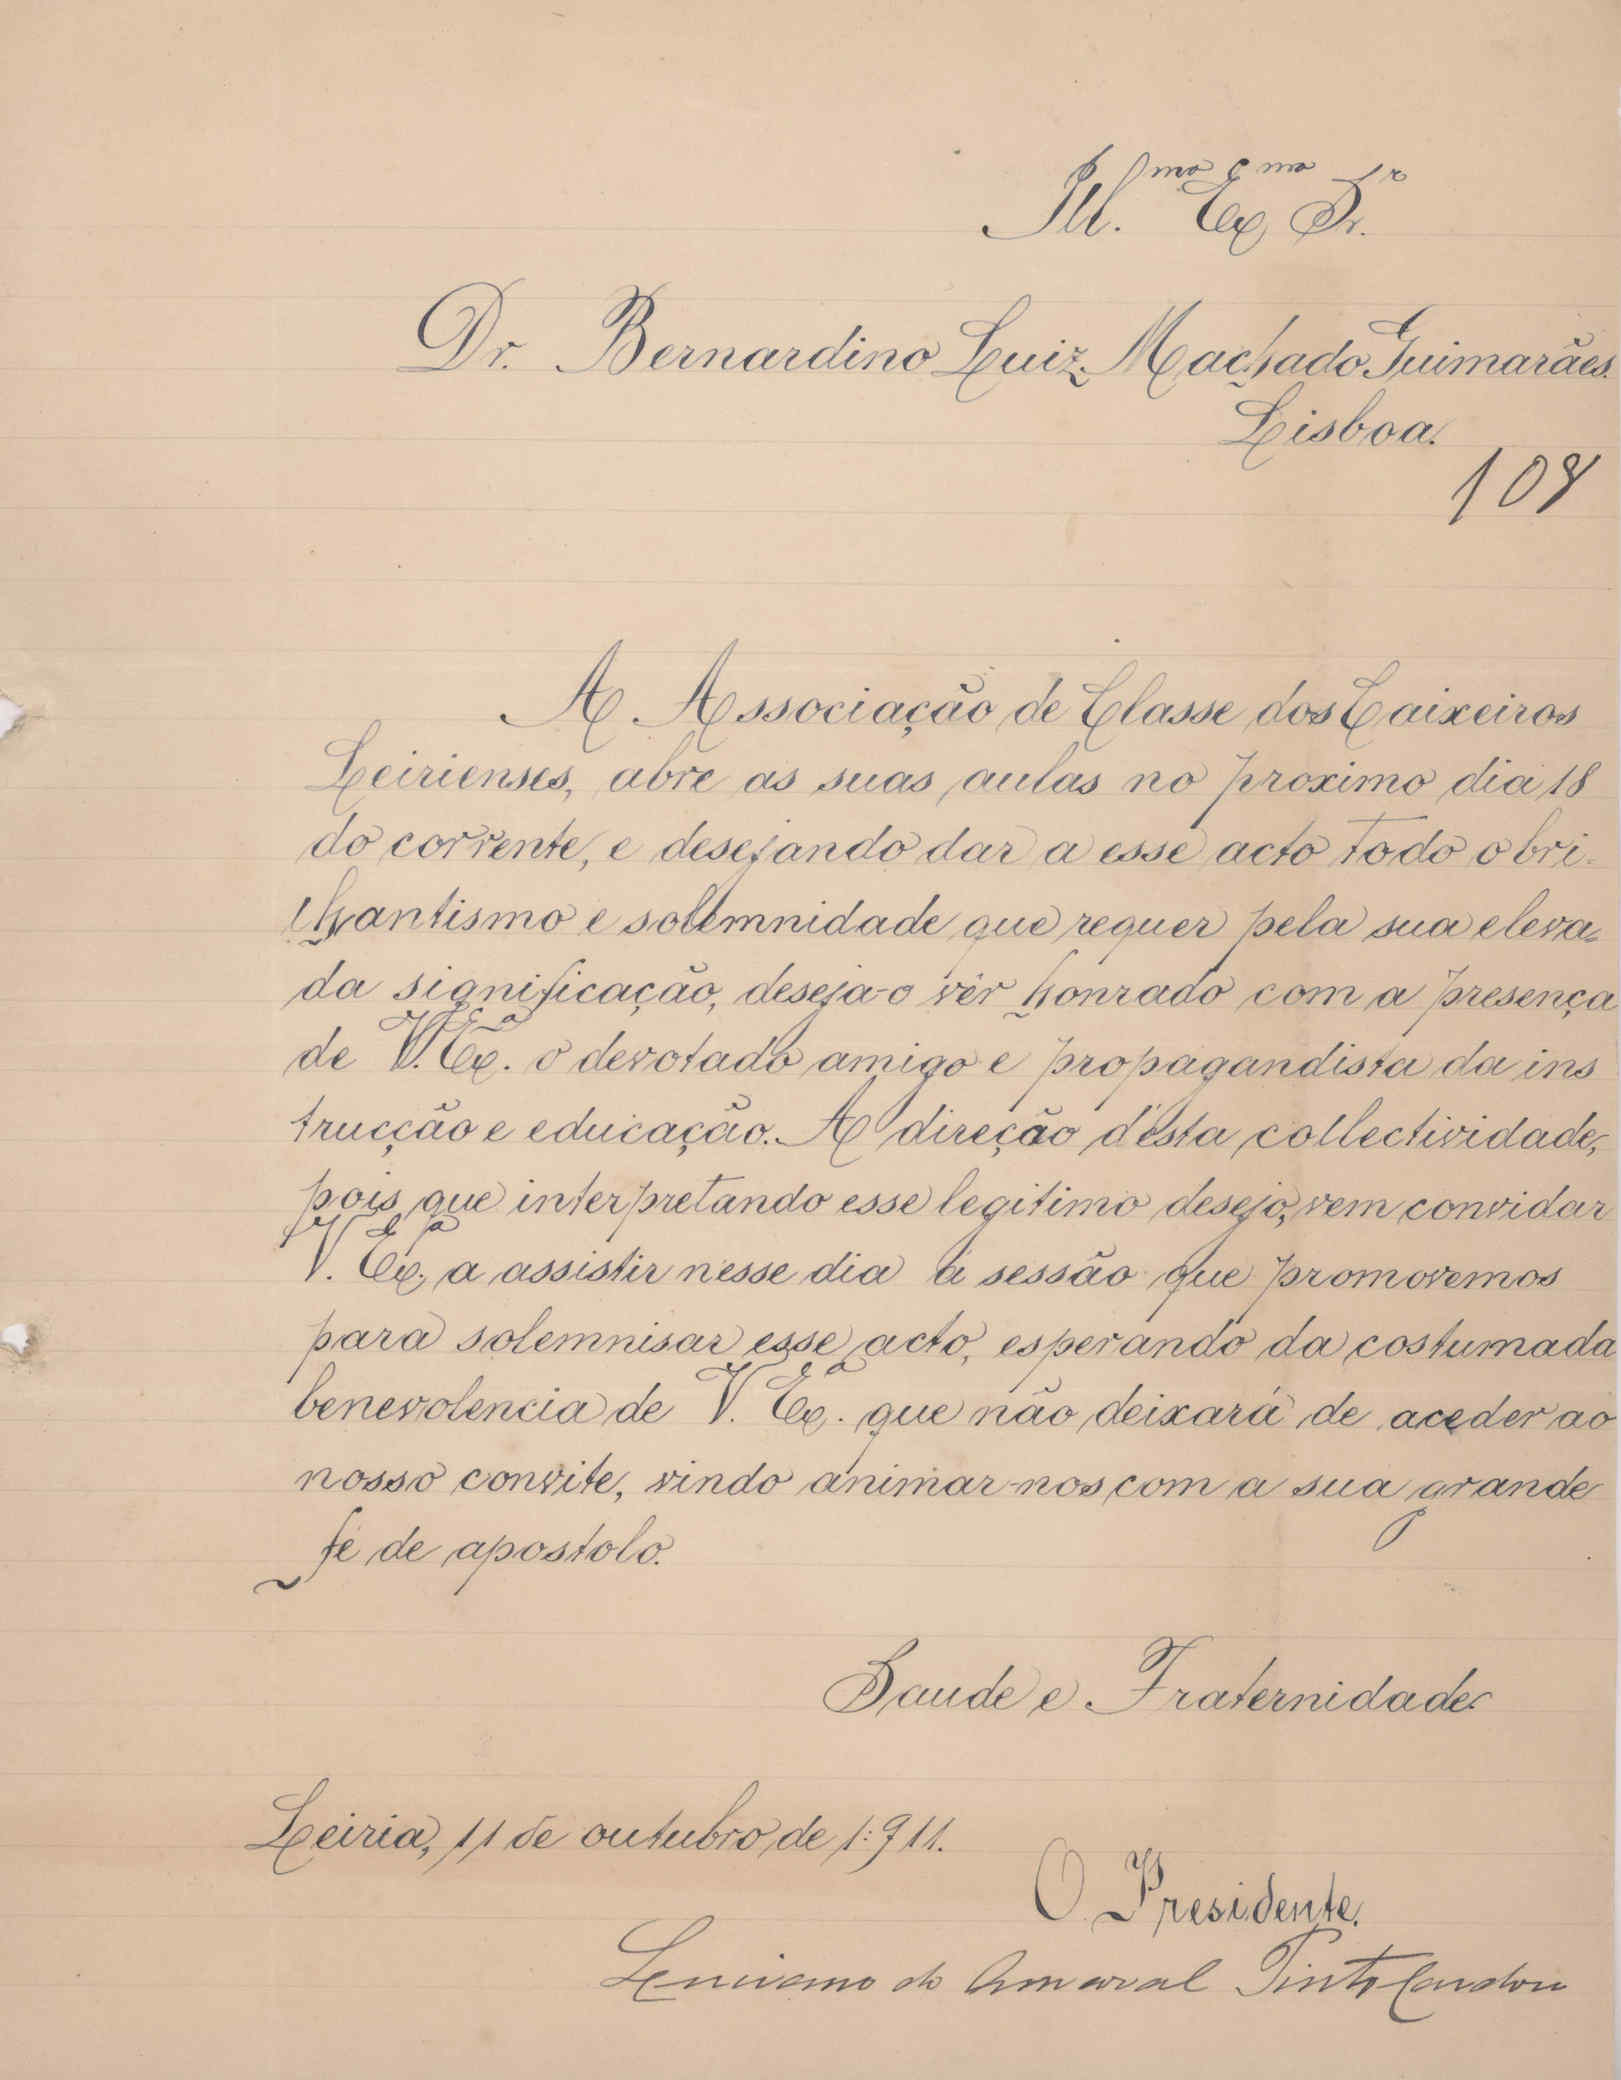 Ill.mo Ex.mo Sr.
Dr. Bernardino Luiz Machado Guimarães.
Lisboa.
108
A Associação de Classe dos Caixeiros
Leirienses, abre as suas aulas no proximo dia 18
do corrente, e desejando dar a esse acto todo o bri-
lhantismo e solemnidade que requer pela sua eleva-
da significação, deseja-o vêr honrado com a presença
de V. Ex.ª o devotado amigo e propagandista da ins
trucção e educação. A direção d'esta collectividade,
pois que interpretando esse legitimo desejo, vem convidar
V. Ex.ª a assistir nesse dia á sessão que promovemos
para solemnisar esse acto, esperando da costumada
benevolencia de V. Ex.ª que não deixará de aceder ao
nosso convite, vindo animar-nos com a sua grande
fé de apostolo.
Saude e Fraternidade
Leiria, 11 de outubro de 1:911.
O Presidente.
do Amaral Pinto